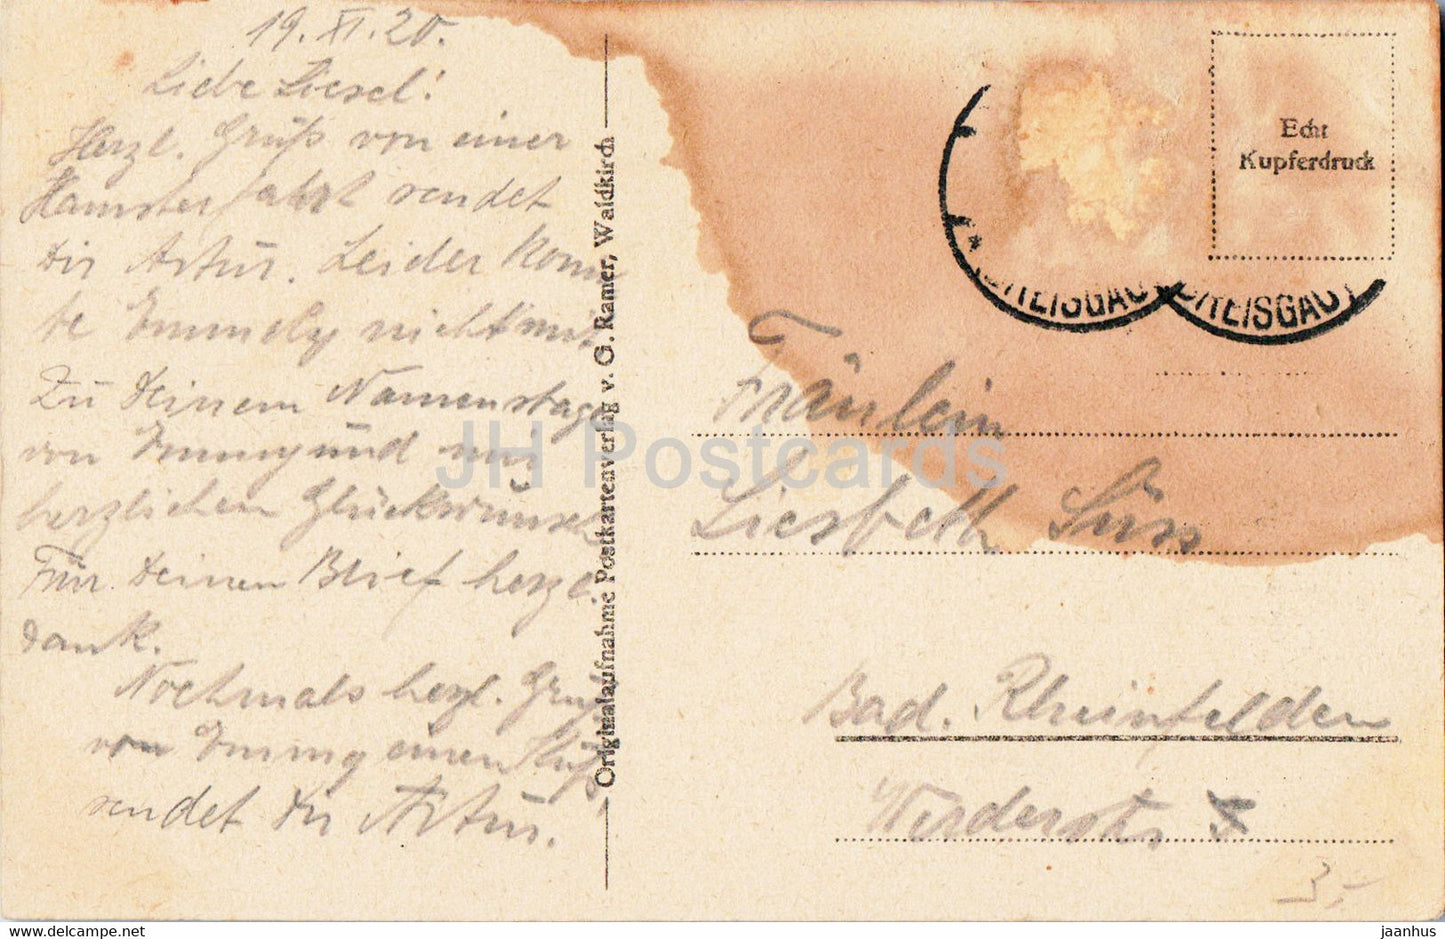 19. XI. 20.
Liebe Liesel!
Herzl. Gruß von einer
Hamsterfahrt sendet
Dir Artur. Leider konn
te Emmely nicht mit
Zu Deinem Namenstage
von Emmy und mir
herzlichen Glückwunsch
Für Deinen Brief herzl.
Dank.
Nochmals herzl. Gruß
von Emmy einen Kuß
sendet Dir Artur.
Originalaufnahme Postkartenverlag v. G. Ramer, Waldkirch
Echt
Kupferdruck
BREISGAU
BREISGAU
Fräulein
Liesbeth Süss
Bad. Rheinfelden
3,-
JH Postcards
www.delcampe.net
jaanhus